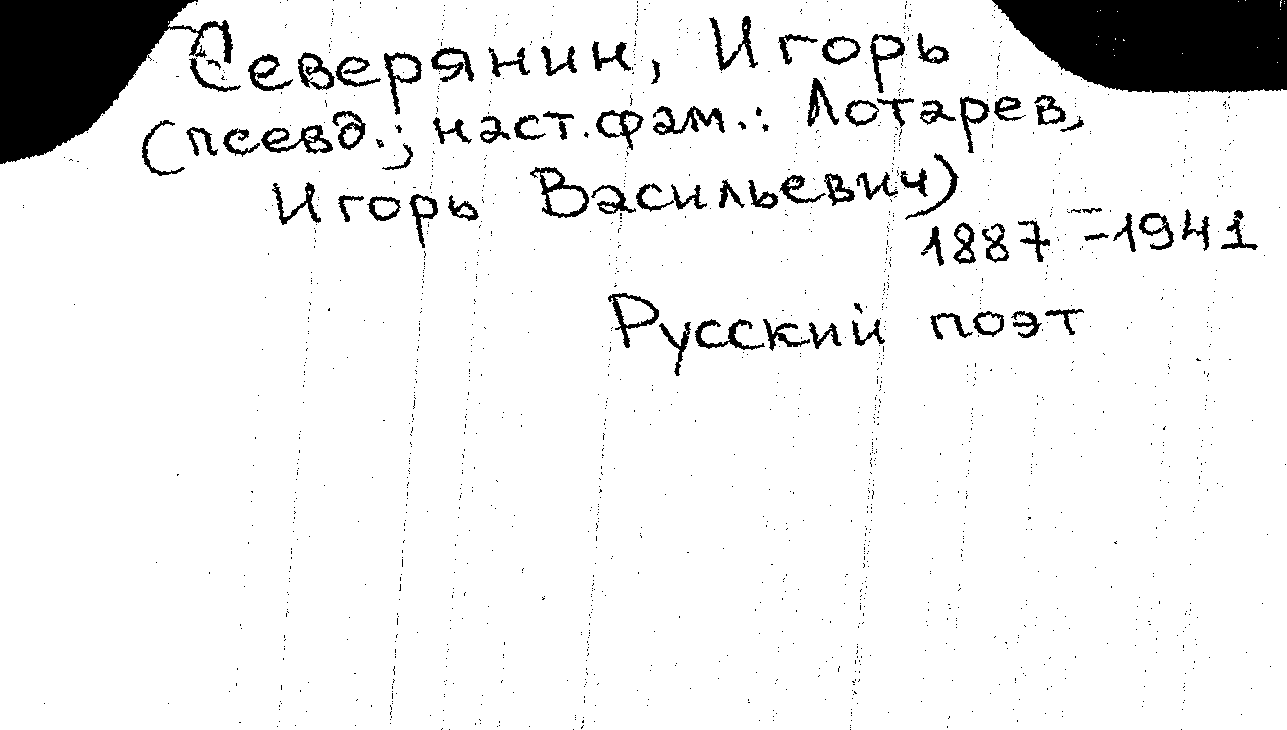 Северянин, Игорь
(псевд.; наст.фам.: Лотарев,
Игорь Васильевич)
1887-1941
Русский поэт